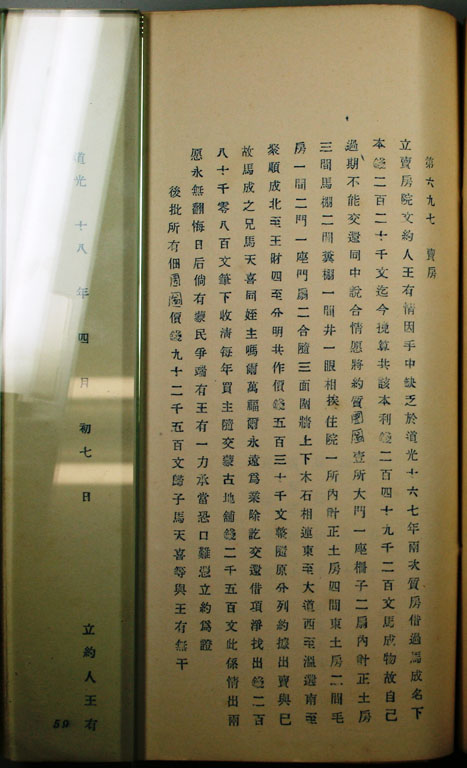 第六九七　賣房
立賣房院文約人王有情因手中缺乏於道光十六七年兩次質房借過馬成名下
本錢二百二十千文迄今撓算共該本利錢二百四十九千二百文馬成物故自己
過期不能交還同中說合情愿將約質園圐壹所大門一座柵子二扇內計正土房
三間馬棚二間糞棚一間井一眼相挨住院一所內計正土房四間東土房二間毛
房一間二門一座門扇二合隨三面圍牆上下木石相連東至大道西至溫選南至
梁順成北至王財四至分明共作價錢五百三十千文整隨原分列約據出賣與已
故馬成之兄馬天喜同姪主嗎爾萬福爾永遠爲業除訖交還借項淨找出錢二百
八十千零八百文筆下收清每年買主隨交蒙古地舖錢二千五百文此係情出兩
愿永無翻悔日后倘有蒙民爭端有王有一力承當恐口難憑立約爲證
後批所有佃圐圙價錢九十二千五百文歸子馬天喜每與王有無干
道光　十八年　四月　初七日
立約人王有
59